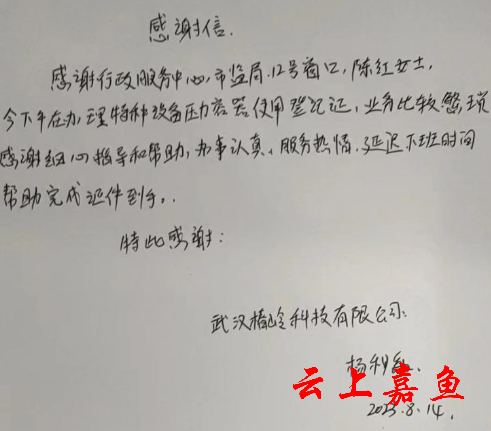 感谢信.
感谢行政服务中心,市监局,12号窗口,陈红女士,
今下午在办理特种设备压力容器使用登记证,业务比较繁琐
感谢细心指导和帮助,办事认真、服务热情.延迟下班时间
帮助完成证件到手..
特此感谢:
武汉楿岭科技有限公司:
杨利
云上嘉鱼
2023.8.14.